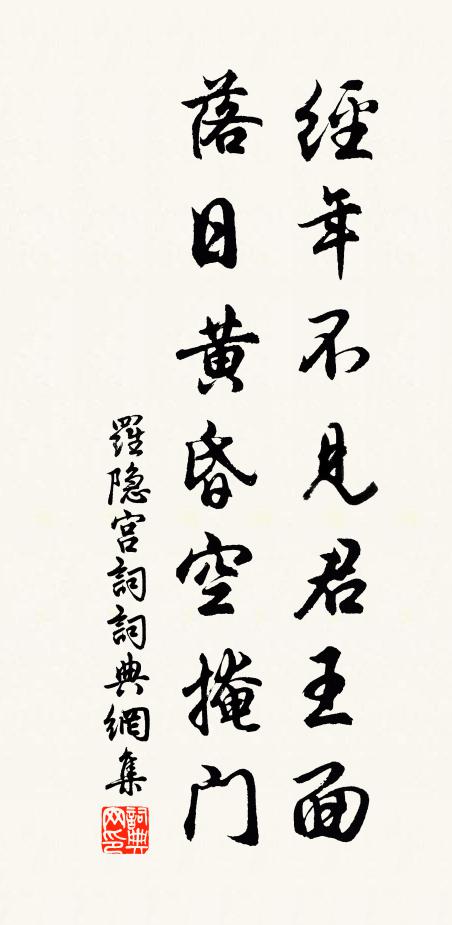 經年不見君王面
落日黄昏空掩门
羅隐宫詞詞典網集
詞典网印